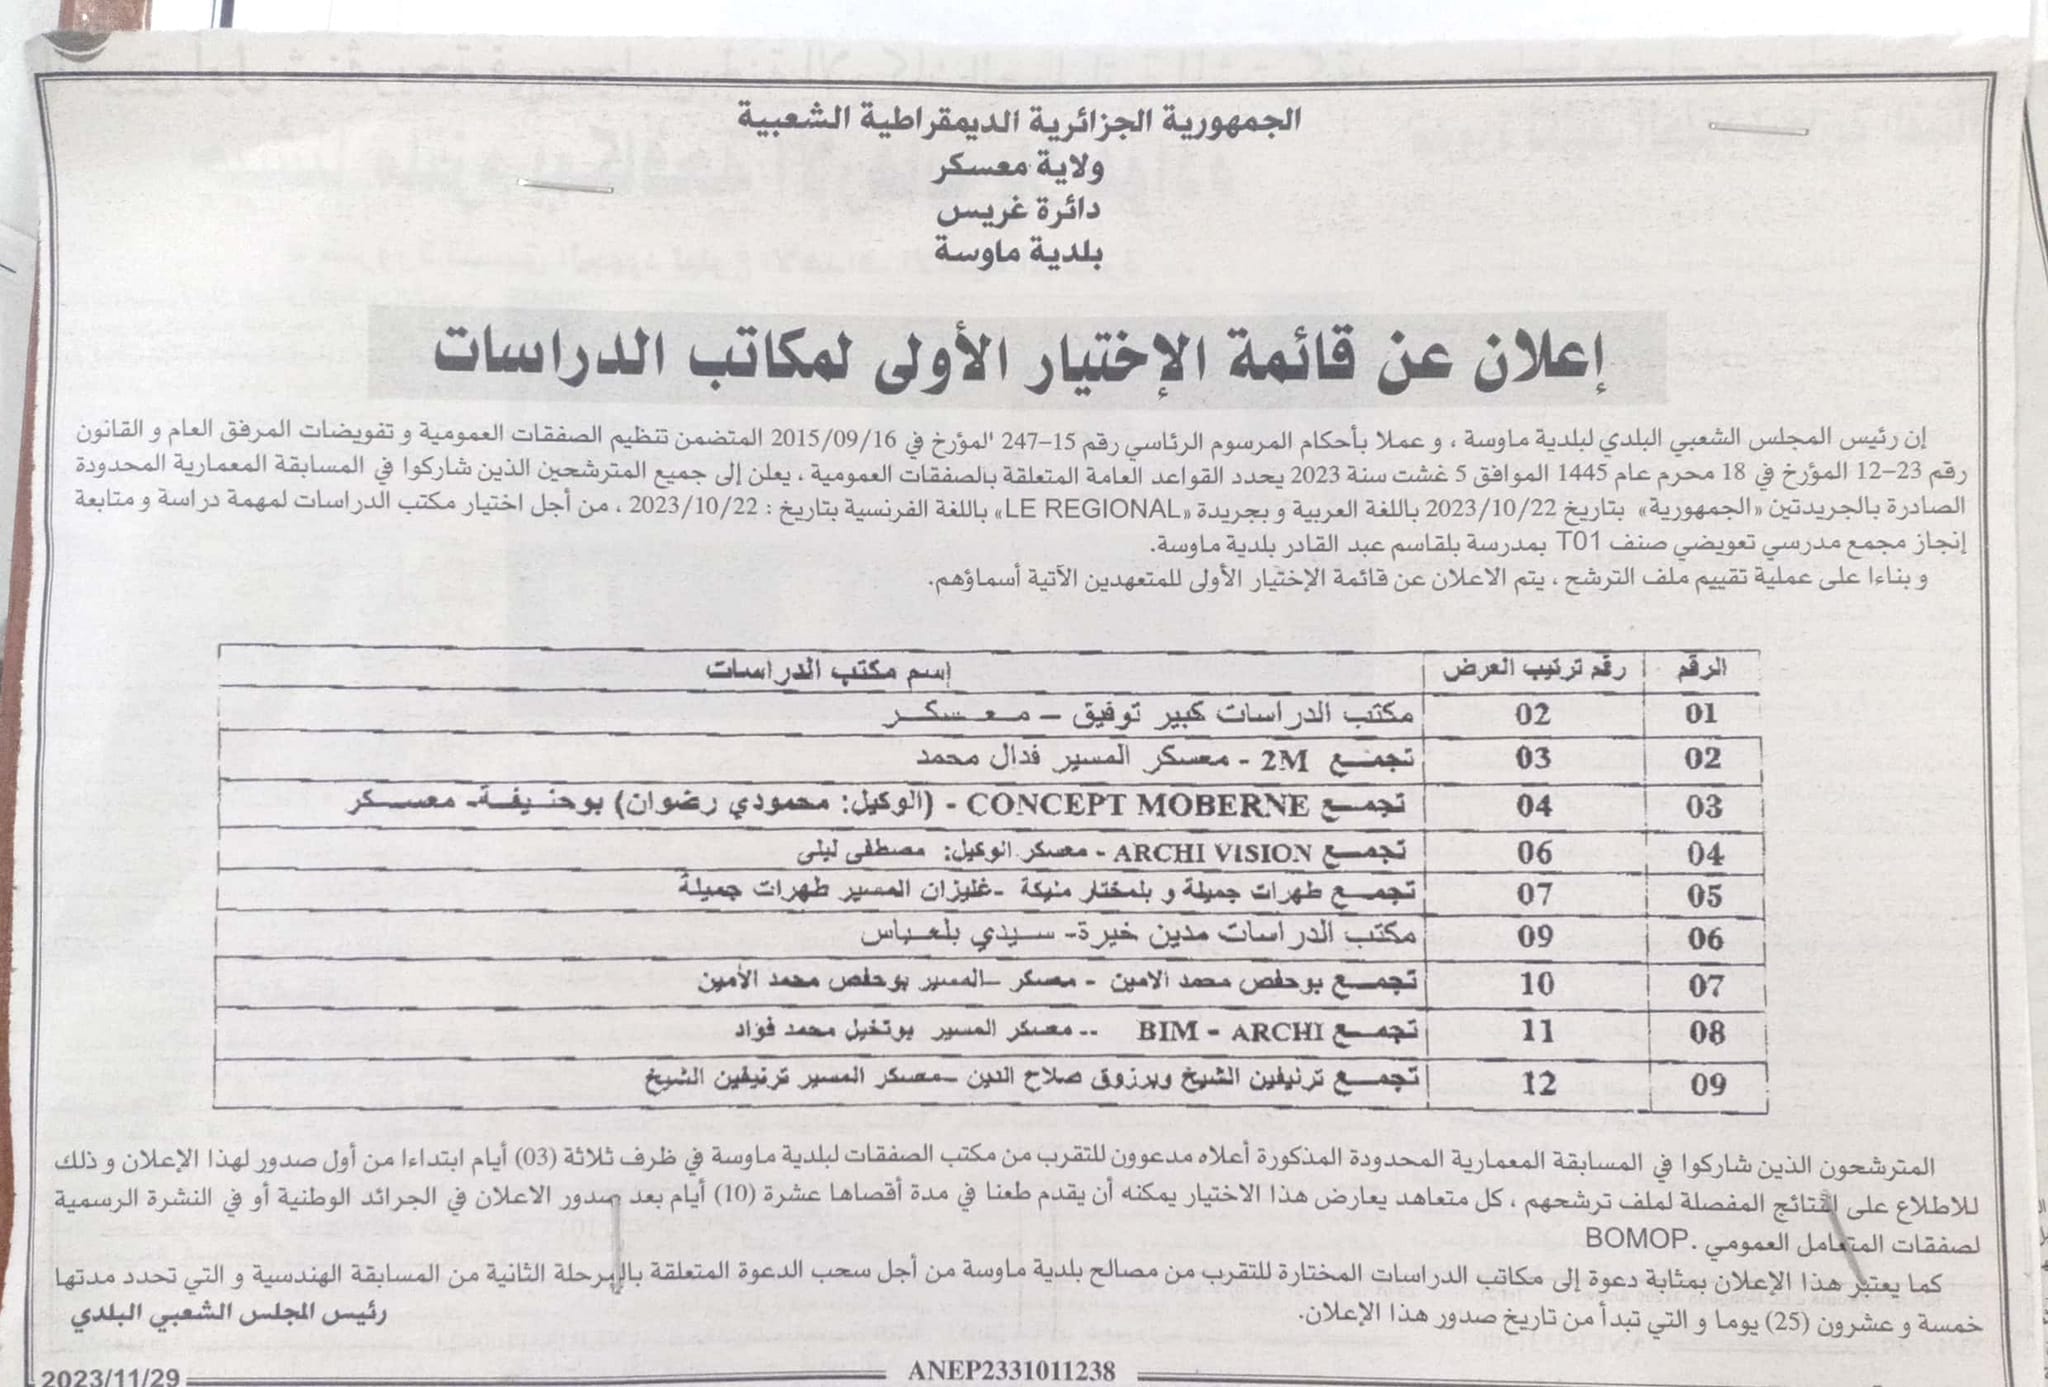 الجمهورية الجزائرية الديمقراطية الشعبية
ولاية معسكر
دائرة غريس
بلدية ماوسة
إعلان عن قائمة الإختيار الأولى لمكاتب الدراسات
إن رئيس المجلس الشعبي البلدي لبلدية ماوسة ، و عملا بأحكام المرسوم الرئاسي رقم 15-247 المؤرخ في 2015/09/16 المتضمن تنظيم الصفقات العمومية و تفويضات المرفق العام و القانون
رقم 23-12 المؤرخ في 18 محرم عام 1445 الموافق 5 غشت سنة 2023 يحدد القواعد العامة المتعلقة بالصفقات العمومية ، يعلن إلى جميع المترشحين الذين شاركوا في المسابقة المعمارية المحدودة
الصادرة بالجريدتين «الجمهورية» بتاريخ 2023/10/22 باللغة العربية و بجريدة «LE REGIONAL» باللغة الفرنسية بتاريخ : 2023/10/22 ، من أجل اختيار مكتب الدراسات لمهمة دراسة و متابعة
إنجاز مجمع مدرسي تعويضي صنف T01 بمدرسة بلقاسم عبد القادر بلدية ماوسة.
و بناءا على عملية تقييم ملف الترشح ، يتم الاعلان عن قائمة الإختيار الأولى للمتعهدين الآتية أسماؤهم.
الرقم رقم ترتيب العرض إسم مكتب الدراسات
01 02 مكتب الدراسات كبير توفيق – معسكر
02 03 تجمع 2M - معسكر المسير فدال محمد
03 04 تجمع CONCEPT MOBERNE - (الوكيل: محمودي رضوان) بوحنيفة- معسكر
04 06 تجمع ARCHI VISION - معسكر الوكيل: مصطفى ليلى
05 07 تجمع طهرات جميلة و بلمختار منيكة -غليزان المسير طهرات جميلة
06 09 مكتب الدراسات مدين خيرة- سيدي بلعباس
07 10 تجمع بوحفص محمد الامين - معسكر –المسير بوحفص محمد الأمين
08 11 تجمع BIM - ARCHI -- معسكر المسير بوتخيل محمد فؤاد
09 12 تجمع ترنيفين الشيخ وبرزوق صلاح الدين –معسكر المسير ترنيفين الشيخ
المترشحون الذين شاركوا في المسابقة المعمارية المحدودة المذكورة أعلاه مدعوون للتقرب من مكتب الصفقات لبلدية ماوسة في ظرف ثلاثة (03) أيام ابتداءا من أول صدور لهذا الإعلان و ذلك
للاطلاع على النتائج المفصلة لملف ترشحهم ، كل متعاهد يعارض هذا الاختيار يمكنه أن يقدم طعنا في مدة أقصاها عشرة (10) أيام بعد صدور الاعلان في الجرائد الوطنية أو في النشرة الرسمية
لصفقات المتعامل العمومي .BOMOP
كما يعتبر هذا الإعلان بمثابة دعوة إلى مكاتب الدراسات المختارة للتقرب من مصالح بلدية ماوسة من أجل سحب الدعوة المتعلقة بالمرحلة الثانية من المسابقة الهندسية و التي تحدد مدتها
خمسة و عشرون (25) يوما و التي تبدأ من تاريخ صدور هذا الإعلان.
رئيس المجلس الشعبي البلدي
ANEP2331011238
2023/11/29